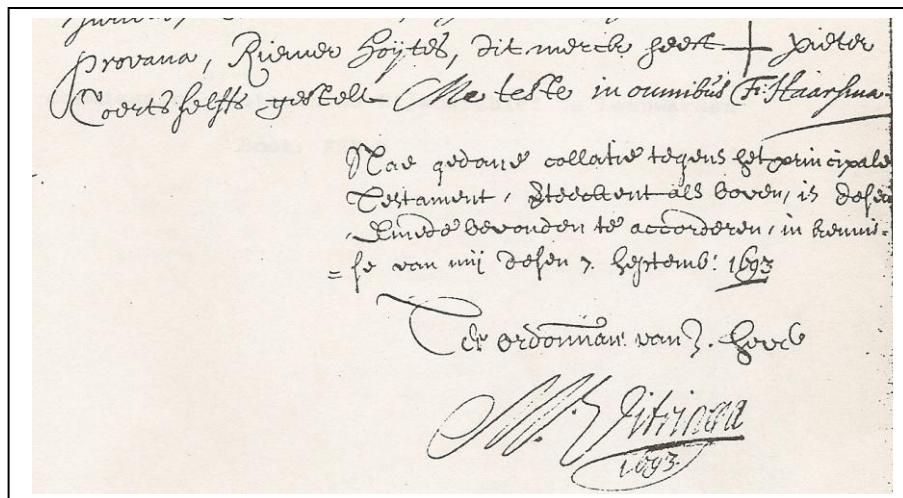 provana, Riemer Hoÿtes, dit merck heeft + pieter
Coerts selffs gestelt Me teste in omnibus F: Haarsma
Nae gedane collatie tegens het principale
Testament, geteeckent als boven, is desen
bevonden te accorderen, in kennis=
=se van mij desen 7. Septemb: 1693
Ter ordonnan: van
M. Vitringa
1693